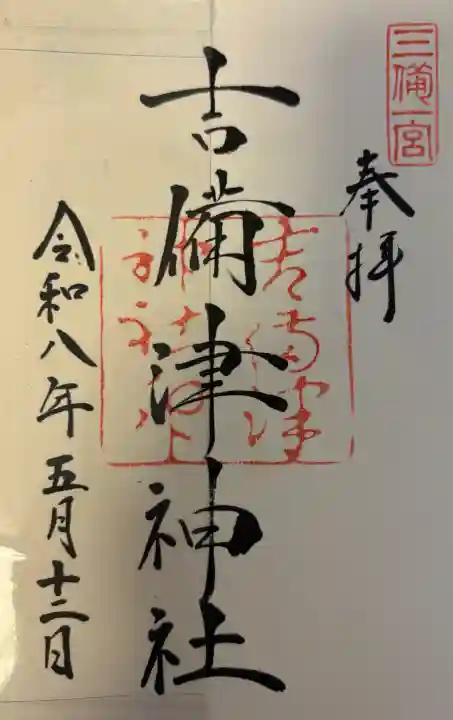 三備一宮
奉拝
吉備津神社
令和八年五月十二日